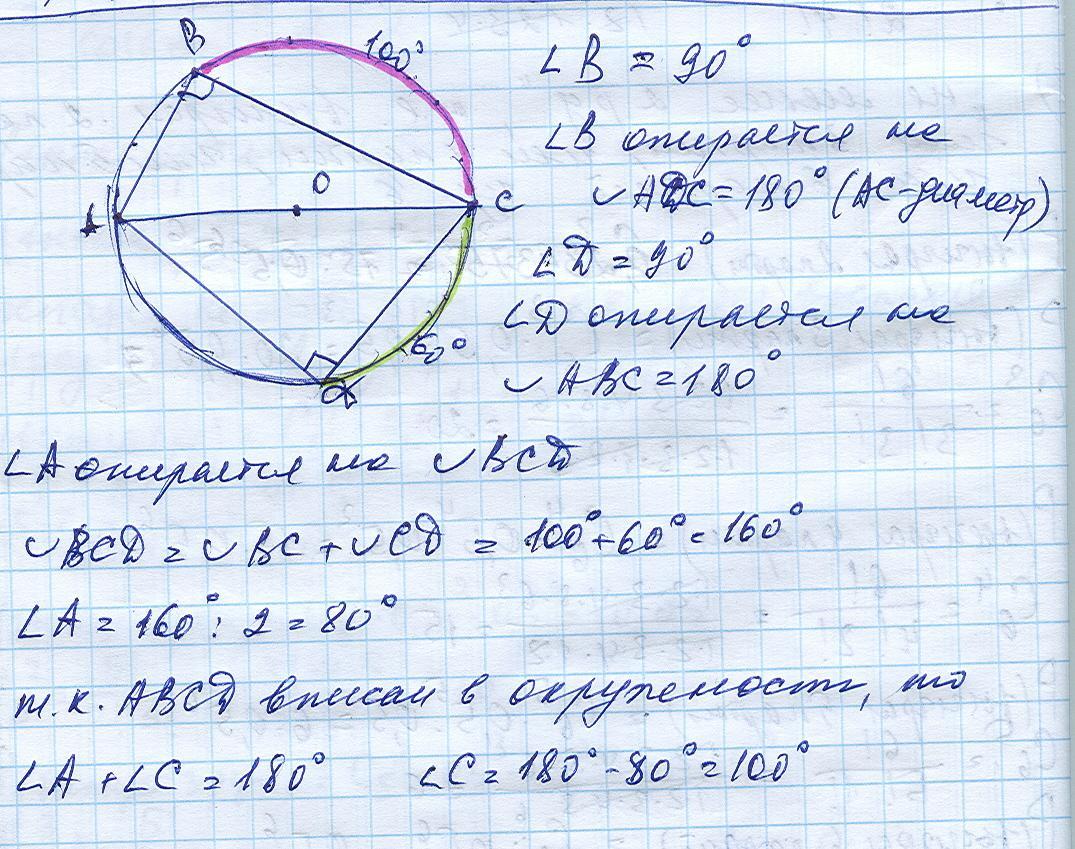 B
100°
O
A
C
60°
D
∠B = 90°
∠B опирается на
◡ADC=180° (AC-диаметр)
∠D = 90°
∠D опирается на
◡ABC=180°
∠A опирается на ◡BCD
◡BCD = ◡BC + ◡CD = 100°+60° = 160°
∠A = 160° : 2 = 80°
т.к. ABCD вписан в окружность, то
∠A + ∠C = 180° ∠C = 180° - 80° = 100°